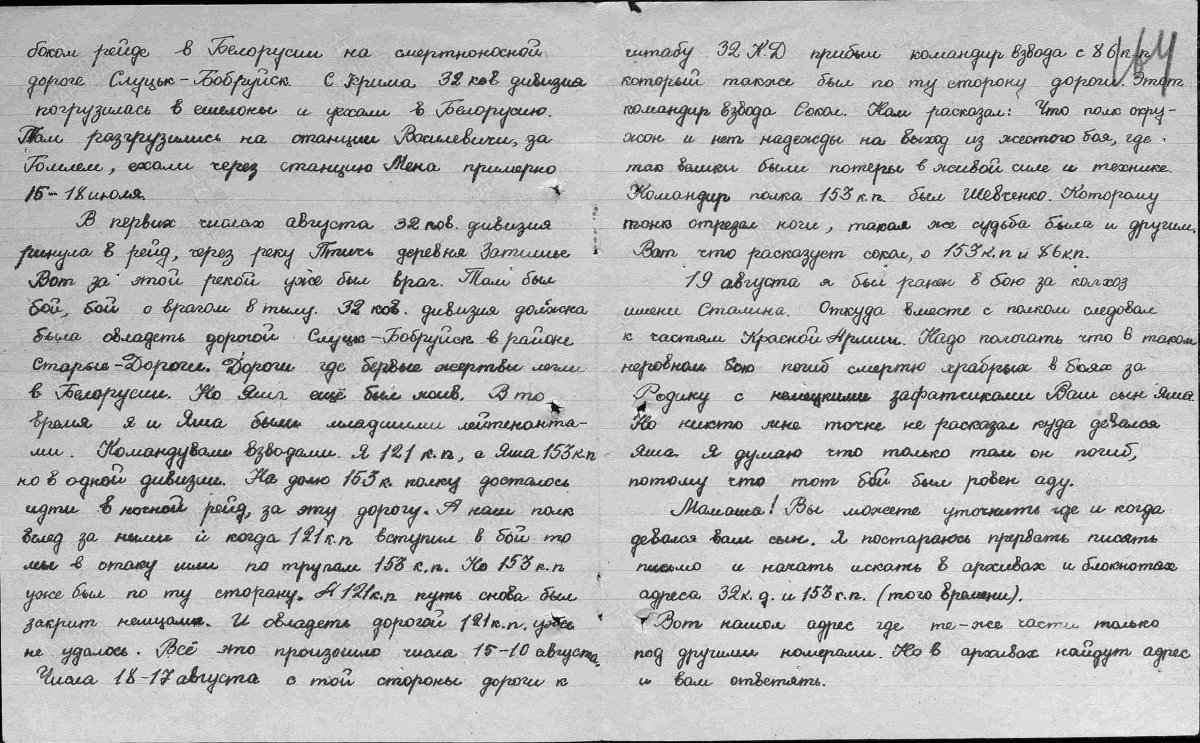 боком рейде в Белорусии на смертноносной
дороге Слуцьк-Бобруйск. С Крима 32 ков дивизия
погрузилась в ешелоны и уехали в Белорусию.
Там разгрузились на станции Василевичи, за
Гомлем, ехали через станцию Мена примерно
15-18 июля.
В первих числах августа 32 ков. дивизия
ринула в рейд, через реку Птичь деревня Затишье
Вот за этой рекой уже был враг. Там был
бой, бой с врагом в тылу. 32 ков. дивизия должна
была овладеть дорогой Слуцк-Бобруйск в районе
Старые-Дороги. Дороги где первые жертвы легли
в Белорусии. Но Яша ещё был жив. В то
время я и Яша были младшими лейтенанта-
ми. Командували взводами. Я 121 к.п, а Яша 153 к.п
но в одной дивизии. На долю 153 к. полку досталось
идти в ночной рейд, за эту дорогу. А наш полк
вслед за ними и когда 121 к.п вступил в бой то
мы в отаку шли по трупам 153 к.п. Но 153 к.п
уже был по ту сторону. А 121 к.п путь снова был
закрит немцами. И овладеть дорогой 121 к.п. уже
не удалось. Всё это произошло числа 15-10 августа,
Числа 18-17 августа с той стороны дороги к
штабу 32 К.Д прибыл командир взвода с 86 п.п
который также был по ту сторону дороги. Этот
командир взвода Сокол. Нам расказал: Что полк окру-
жон и нет надежды на выход из жестого боя, где
так велики были потеры в живой силе и технике.
Командир полка 153 к.п. был Шевченко. Которому
танк отрезал ноги, такая же судьба была и другим.
Вот что расказует сокол, о 153 к.п и 86 к.п.
19 августа я был ранен в бою за колхоз
имени Сталина. Откуда вместе с полком следовал
к частям Красной Армии. Надо пологать что в таком
неровном бою погиб смертю храбрых в боях за
Родину с немецкими зафатчиками Ваш сын Яша.
Но никто мне точне не расказал куда девался
Яша. Я думаю что только там он погиб,
потому что тот бой был ровен аду.
Мамаша! Вы можете уточнить где и когда
девался вам сын. Я постараюсь прервать писать
письмо и начать искать в архивах и блокнотах
адреса 32 к.д. и 153 к.п. (того времени).
Вот нашол адрес где те-же части только
под другими номерами. Но в архивах найдут адрес
и вам ответять.